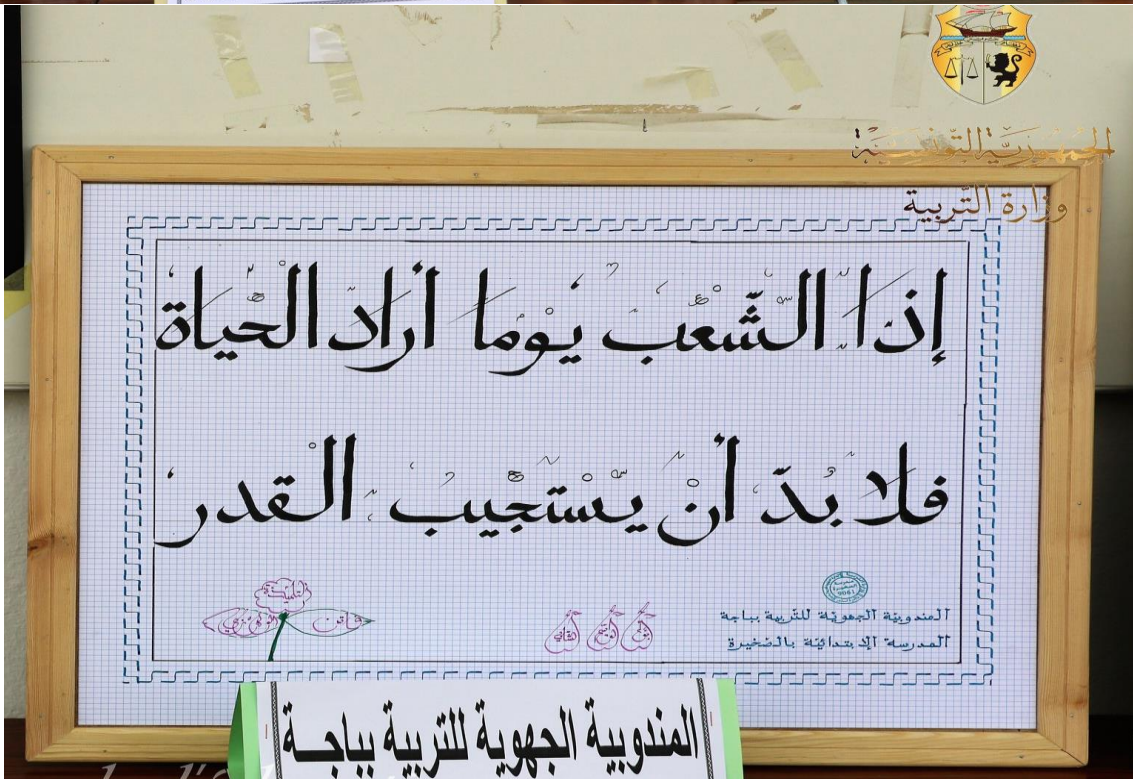 الجمهورية التونسية
وزارة التربية
إِذَا الشَّعْبُ يَوْمًا أَرَادَ الْحَيَاةَ
فَلَا بُدَّ أَنْ يَسْتَجِيبَ الْقَدَرْ
المندوبية الجهوية للتربية بباجة
المدرسة الابتدائية بالضخيرة
التلميذة
فاتن
المندوبية الجهوية للتربية بباجــة